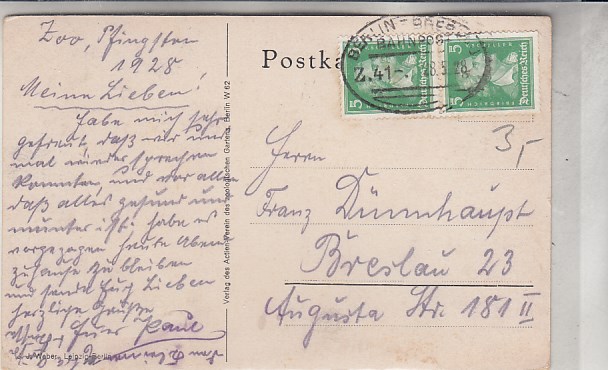 Zoo, Pfingsten
1928
Meine Lieben!
Habe mich sehr
gefreut, daß wir uns
mal wieder sprechen
konnten, und vor allem
daß alles gesund und
munter ist. habe es
vorgezogen heute Abend
zuhause zu bleiben
und sende Euch Lieben
herzliche Grüße
Euer Paul
J. Weber, Leipzig-Berlin
Verlag des Actien-Verein des zoologischen Gartens, Berlin W 62
Postka
BERLIN - BRES
BAHNPOST
Z.41
5
SCHILLER
Deutsches Reich
5
Deutsches Reich
3,-
Herrn
Franz Dünnhaupt
Breslau 23
Augusta Str. 181 II